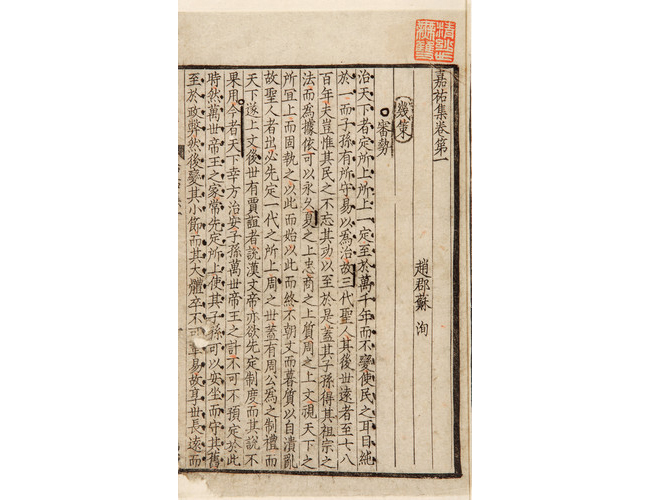 嘉祐集卷第一
趙郡蘇洵
幾策
審勢
治天下者定所上所上一定至於萬千年而不變使民之耳目純
於一而子孫有所守易以為治故三代聖人其後世遠者至七八
百年夫豈惟其民之不忘其功以至於是蓋其子孫得其祖宗之
法而為據依可以永久夏之上忠商之上質周之上文視天下之
所宜上而固執之以此而始以此而終不朝文而暮質以自潰亂
故聖人者出必先定一代之所上周之世蓋有周公為之制禮而
天下遂上文後世有賈誼者說漢文帝亦欲先定制度而其說不
果用今者天下幸方治安子孫萬世帝王之計不可不預定於此
時然萬世帝王之家常先定所上使其子孫可以安坐而守其舊
至於政弊然後變其小節而其大體卒不可革易故享世長遠而